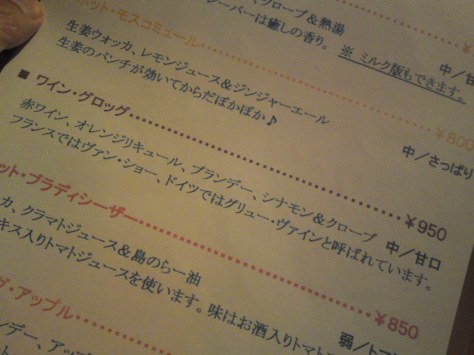 クローブ＆熱湯
レーバーは癒しの香り。 ※ ミルク版もできます。
中／甘口
ホット・モスコミュール ¥800
生姜ウォッカ、レモンジュース＆ジンジャーエール
生姜のパンチが効いてからだぽかぽか♪
中／さっぱり
■ ワイン・グロッグ ¥950
赤ワイン、オレンジリキュール、ブランデー、シナモン＆クローブ
フランスではヴァン・ショー、ドイツではグリュー・ヴァインと呼ばれています。
中／甘口
ット・ブラディシーザー ¥850
カ、クラマトジュース＆島のらー油
キス入りトマトジュースを使います。味はお酒入りトマト
弱／トー
グ・アップル
ンデー、アッ